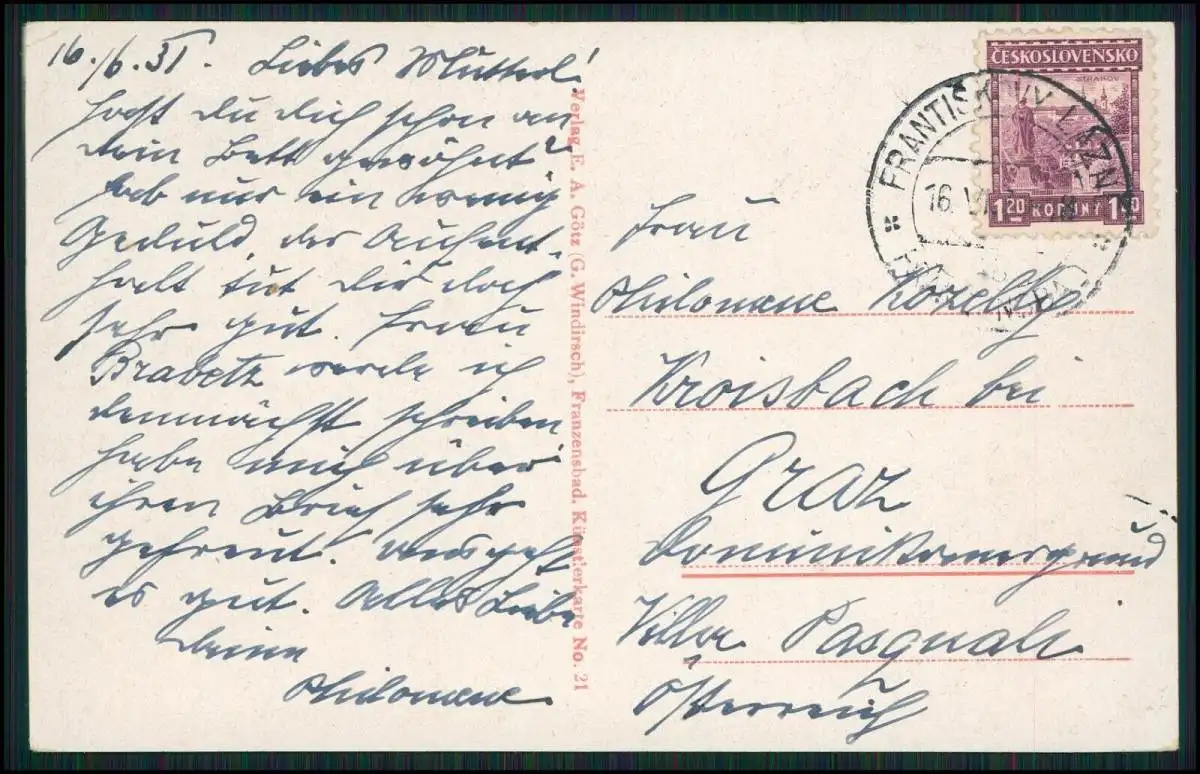 16./6.31. Liebes Mutterl!
hast du dich schon an
dein Bett gewöhnt?
hab nur ein wenig
Geduld der Aufent-
halt tut dir doch
sehr gut. Frau
Brabetz werde ich
demnächst schreiben
habe mich über
ihren Brief sehr
gefreut. uns geht
es gut. Alles Liebe
Deine
Philomene
Verlag E. A. Götz (G. Windirsch), Franzensbad. Künstlerkarte No. 21
ČESKOSLOVENSKO
STRAHOV
1 20 KORUNY 1 20
FRANTIŠKOVY LÁZNĚ
16. VI.
Frau
Philomene
Kroisbach bei
Graz
Dominikanergrund
Villa Pasquale
Österreich